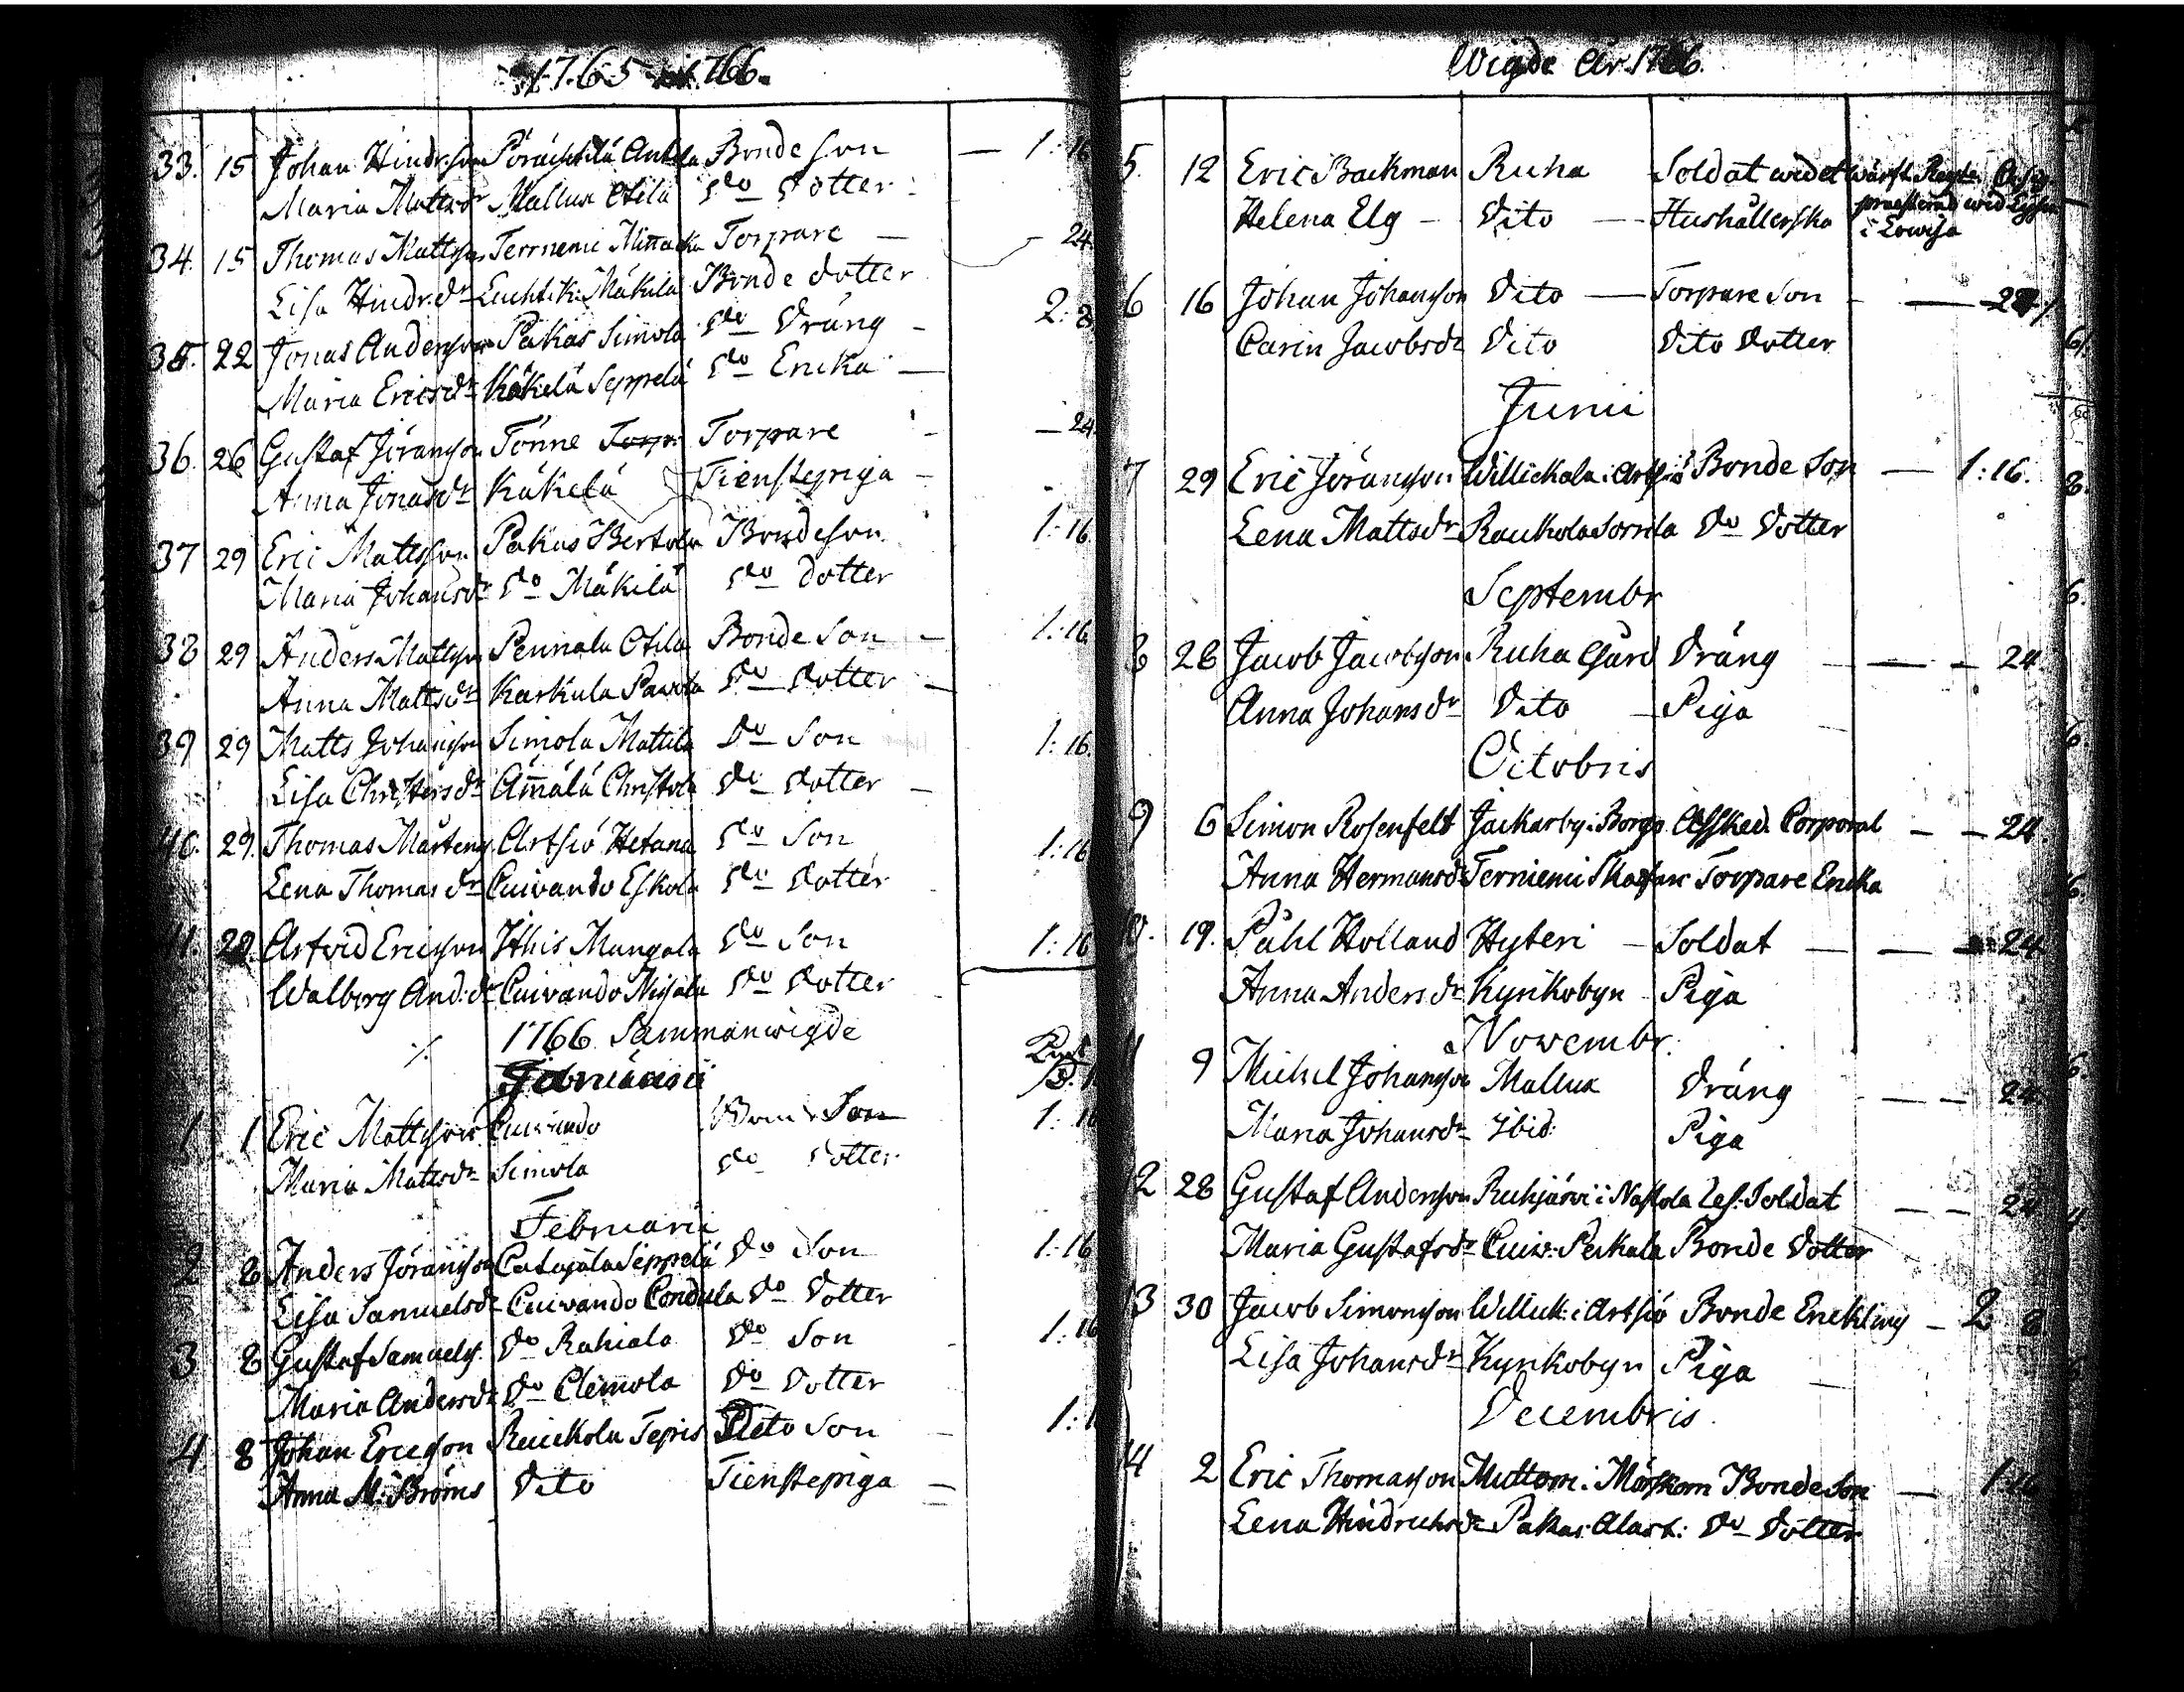 1765 1766.
33. 15 Johan Hindr:son Anttila Bonde Son — 1:16
Maria Mattsdr Mallux Otila Do Dotter
34. 15 Thomas Mattson Terrnemi Torpare — 24.
Lisa Hindr:dr Mäkilä Bonde dotter
35. 22 Jonas Anderson Pakas Simola Do Dräng — 2: 8
Maria Ericsdr Käkelä Seppelä Do Encka —
36. 26 Gustaf Jöranson Tönne Torpare — 24.
Anna Jonasdr Käkelä Tienstepiga
37 29 Eric Mattsson Pakas Bertola Bondeson 1:16
Maria Johansdr Do Mäkilä Do dotter
38 29 Anders Mattson Pennala Otila Bonde Son — 1:16
Anna Mattsdr Karkula Pavola Do Dotter —
39 29 Matts Johanson Simola Mattila Do Son 1:16.
Lisa Christersdr Am̄älä Christola Do Dotter —
40. 29. Thomas Mårtens. Artsiö Hetana Do Son 1:16
Lena Thomasdr Cuivando Eskola Do Dotter
41. 29. Arfvid Ericson Ithis Mangala Do Son 1:16
Walborg And:dr Cuivando Do Dotter
1766 Sammanwigde
1 1 Eric Mattson Cuivando Bonde Son 1:16
Maria Matsdr Simola Do Dotter
Februarii
2 8 Anders Jöranson Catajala Seppelä Do Son 1:16
Lisa Samuelsdr Cuivando Condula Do Dotter
3 8 Gustaf Samuels. Do Rahiala Do Son 1:16
Maria Andersdr Do Clemola Do Dotter
4 8 Johan Ericson Reuckola Tepris Dito Son 1:1
Anna M: Broms Dito Tienstepiga —
Wigde År 1766.
5. 12 Eric Backman Ruha Soldat widet wärft. Reg:te
Helena Elg — Dito — Hushållerska i Lovisa
6 16 Johan Johanson Dito — Torpare Son — 24
Carin Jacobsdr Dito Dito Dotter
Junii
7 29 Eric Jöranson Willickala i Artsiö Bonde Son — 1:16.
Lena Mattsdr Raukola Sorrila Do Dotter
Septembr
8 28 Jacob Jacobson Ruha Gård Dräng — — 24.
Anna Johansdr Dito — Piga
Octobris
9 6 Simon Rosenfelt Jackarby i Borgo Afsked. Corporal — — 24.
Anna Hermansdr Terniemi Torpare Encka
10. 19. Påhl Holland Hyteri — Soldat — — 24
Anna Andersdr Kyrkobyn Piga
Novembr.
11 9 Michel Johanson Mallux Dräng — — 24.
Maria Johansdr Ibid: Piga
12 28 Gustaf Anderson Ruhjärvi i Nastola Soldat — — 24
Maria Gustafsdr Cuiv: Peckala Bonde Dotter
13 30 Jacob Simonson Willick: i Artsiö Bonde Enckling — 2 8
Lisa Johansdr Kyrkobyn Piga
Decembris.
14 2 Eric Thomasson Muttom i Bonde Son — 1:16
Lena Hindrichsdr Pakas: Alast: Do Dotter